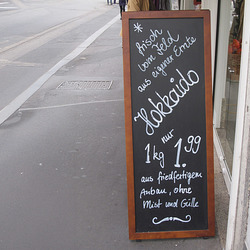 * frisch
vom Feld
aus eigener Ernte
Hokkaido
nur
1kg 1.99
aus friedfertigem
Anbau, ohne
Mist und Gülle